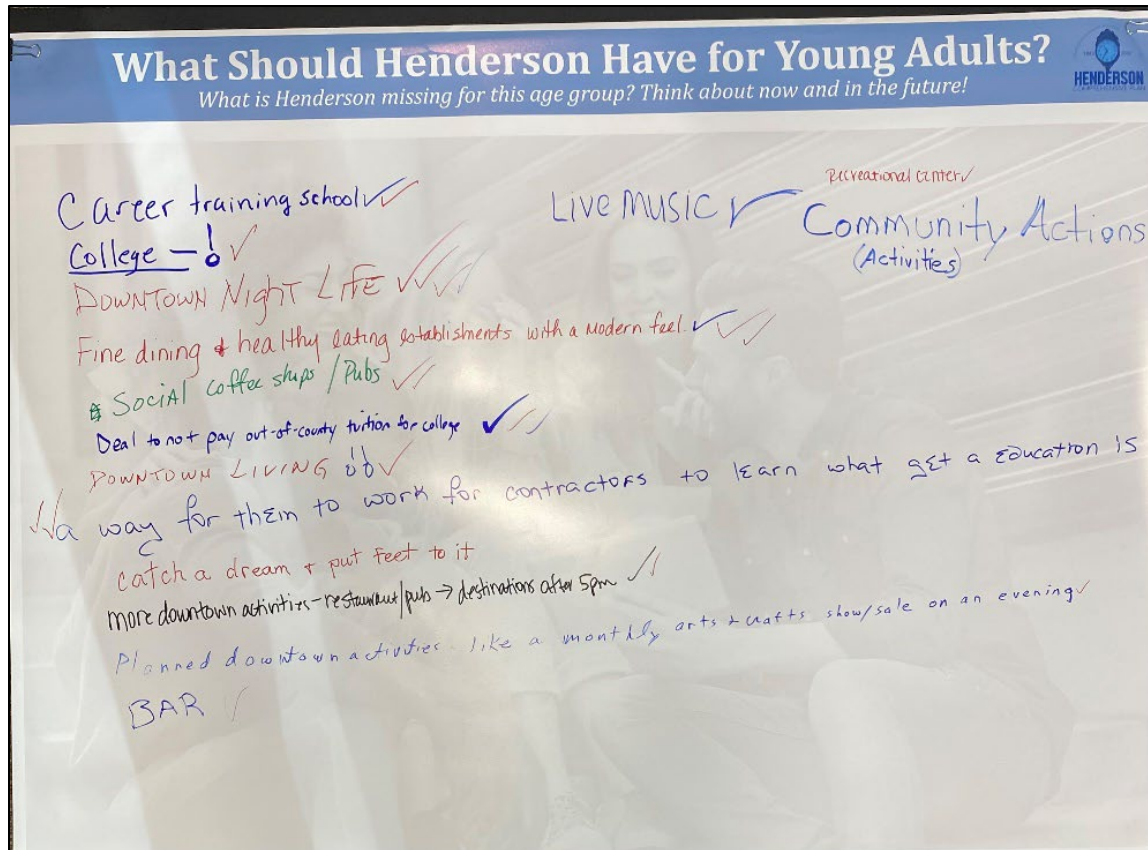 What Should Henderson Have for Young Adults?
What is Henderson missing for this age group? Think about now and in the future!
HENDERSON
COMPREHENSIVE PLAN
Career training school ✓✓
College - ! ✓
DOWNTOWN NIGHT LIFE ✓✓✓✓
Fine dining & healthy eating establishments with a modern feel. ✓✓✓
SOCIAL COFFEE shops / Pubs ✓✓
Deal to not pay out-of-county tuition for college ✓✓✓
DOWNTOWN LIVING !! ✓
✓✓ a way for them to work for contractors to learn what get a education is
catch a dream + put feet to it
more downtown activities - restaurant/pub → destinations after 5pm ✓✓
Planned downtown activities. like a monthly arts + crafts show/sale on an evening ✓
BAR ✓
LIVE MUSIC ✓
Recreational center ✓
Community Actions
(Activities)